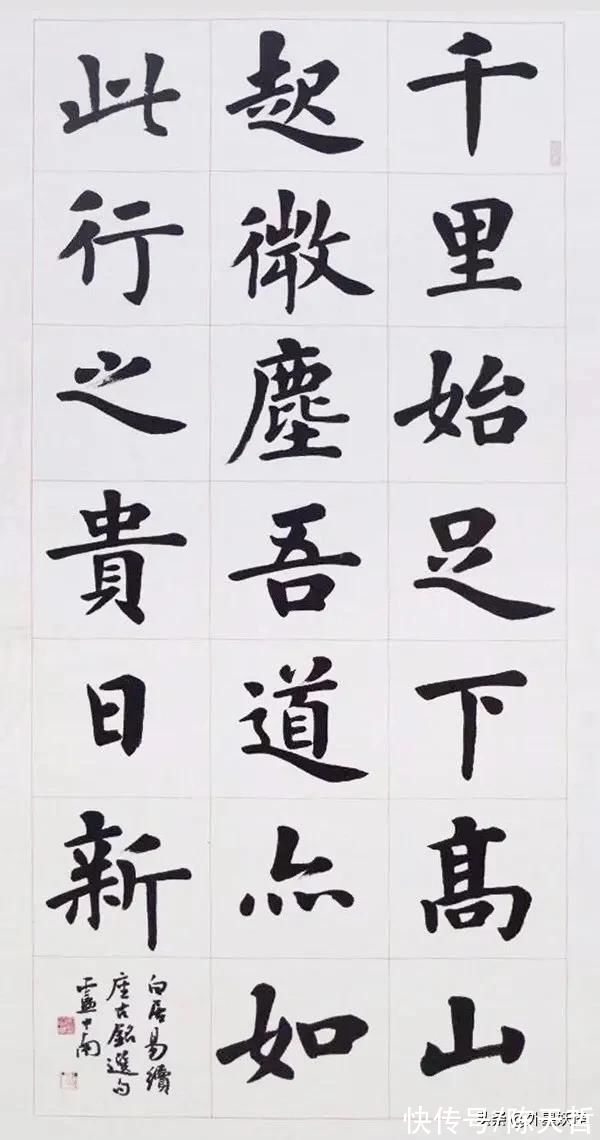 千里始足下髙山
起微塵吾道亦如
此行之貴日新
白居易續
座右銘選句
盧中南
快传号/
头条